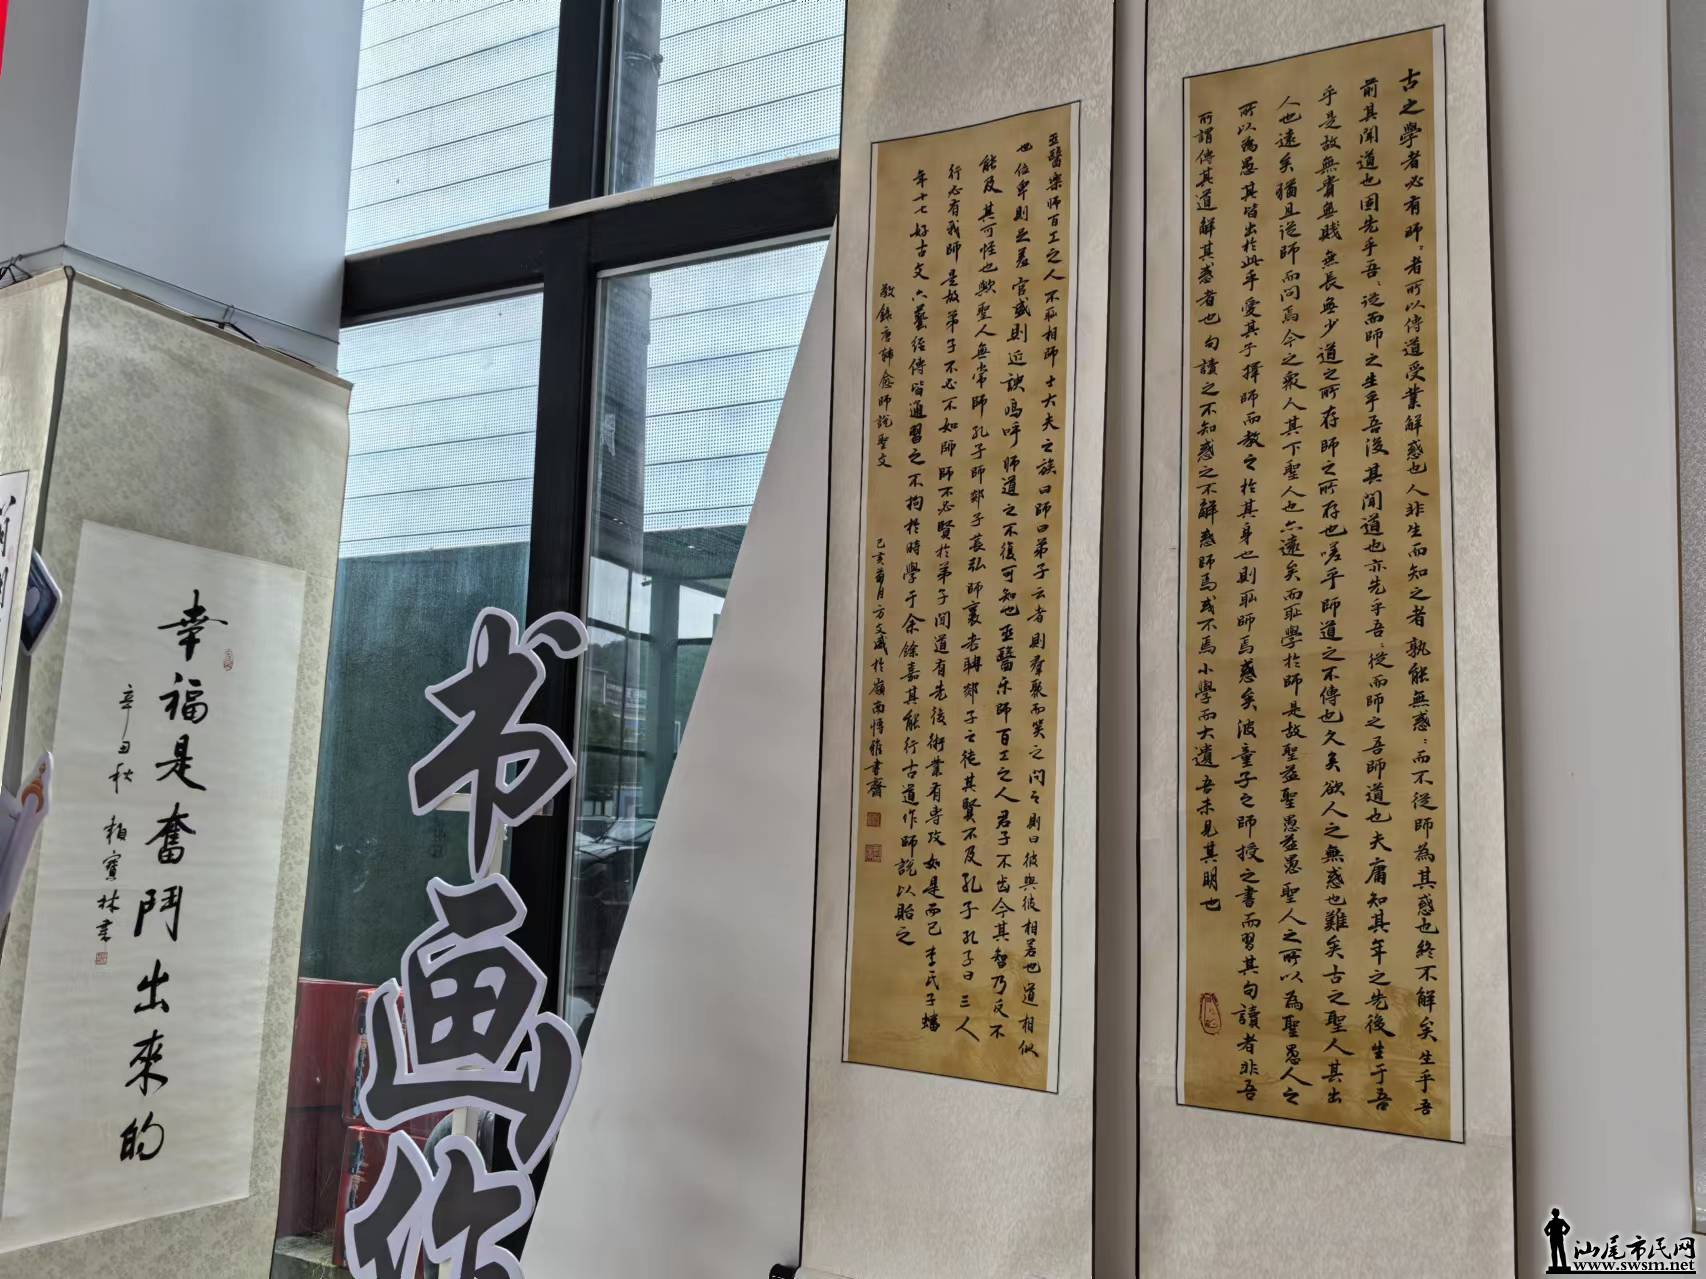 古之學者必有師:者所以傳道受業解惑也人非生而知之者孰能無惑:而不從師為其惑也終不解矣生乎吾
前其聞道也固先乎吾:從而師之生乎吾後其聞道也亦先乎吾:從而師之吾師道也夫庸知其年之先後生于吾
乎是故無貴無賤無長無少道之所存師之所存也嗟乎師道之不傳也久矣欲人之無惑也難矣古之聖人其出
人也遠矣猶且從師而問焉今之眾人其下聖人也亦遠矣而恥學於師是故聖益聖愚益愚聖人之所以為聖愚人之
所以為愚其皆出於此乎愛其子擇師而教之於其身也則恥師焉惑矣彼童子之師授之書而習其句讀者非吾
所謂傳其道解其惑者也句讀之不知惑之不解惑師焉或不焉小學而大遺吾未見其明也
巫醫樂師百工之人不恥相師士大夫之族曰師曰弟子云者則羣聚而笑之問之則曰彼與彼相若也道相似
也位卑則足羞官盛則近諛嗚呼師道之不復可知也巫醫乐師百工之人君子不齿今其智乃反不
能及其可怪也歟聖人無常師孔子師郯子萇弘師襄老聃郯子之徒其賢不及孔子孔子曰三人
行必有我師是故弟子不必不如師師不必賢於弟子聞道有先後術業有專攻如是而已李氏子蟠
年十七好古文六藝經傳皆通習之不拘於時學于余余嘉其能行古道作師說以貽之
敬錄唐韓愈師說聖文
己亥首月方文盛於嶺南博雅書齋
幸福是奮鬥出來的
辛丑秋賴寶林書
书画作
汕尾市民网
www.swsm.net